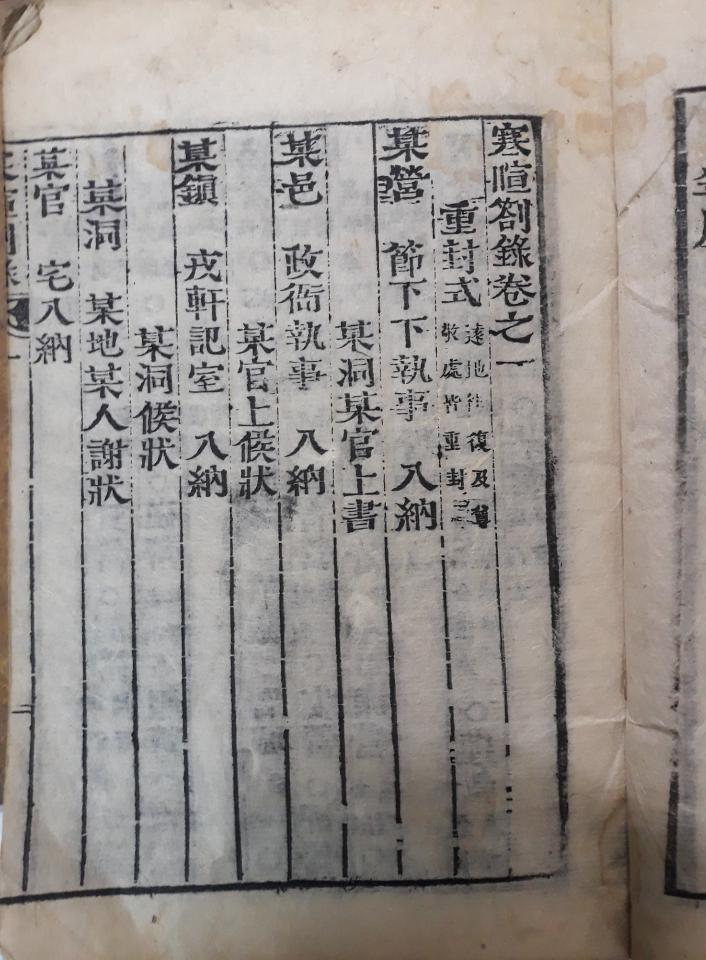 寒暄劄錄卷之一
重封式 遠地往復及尊
敬處皆重封
某營 節下下執事 入納
某洞某官上書
某邑 政衙執事 入納
某官上候狀
某鎭 戎軒記室 入納
某洞候狀
某洞 某地某人謝狀
某官 宅入納